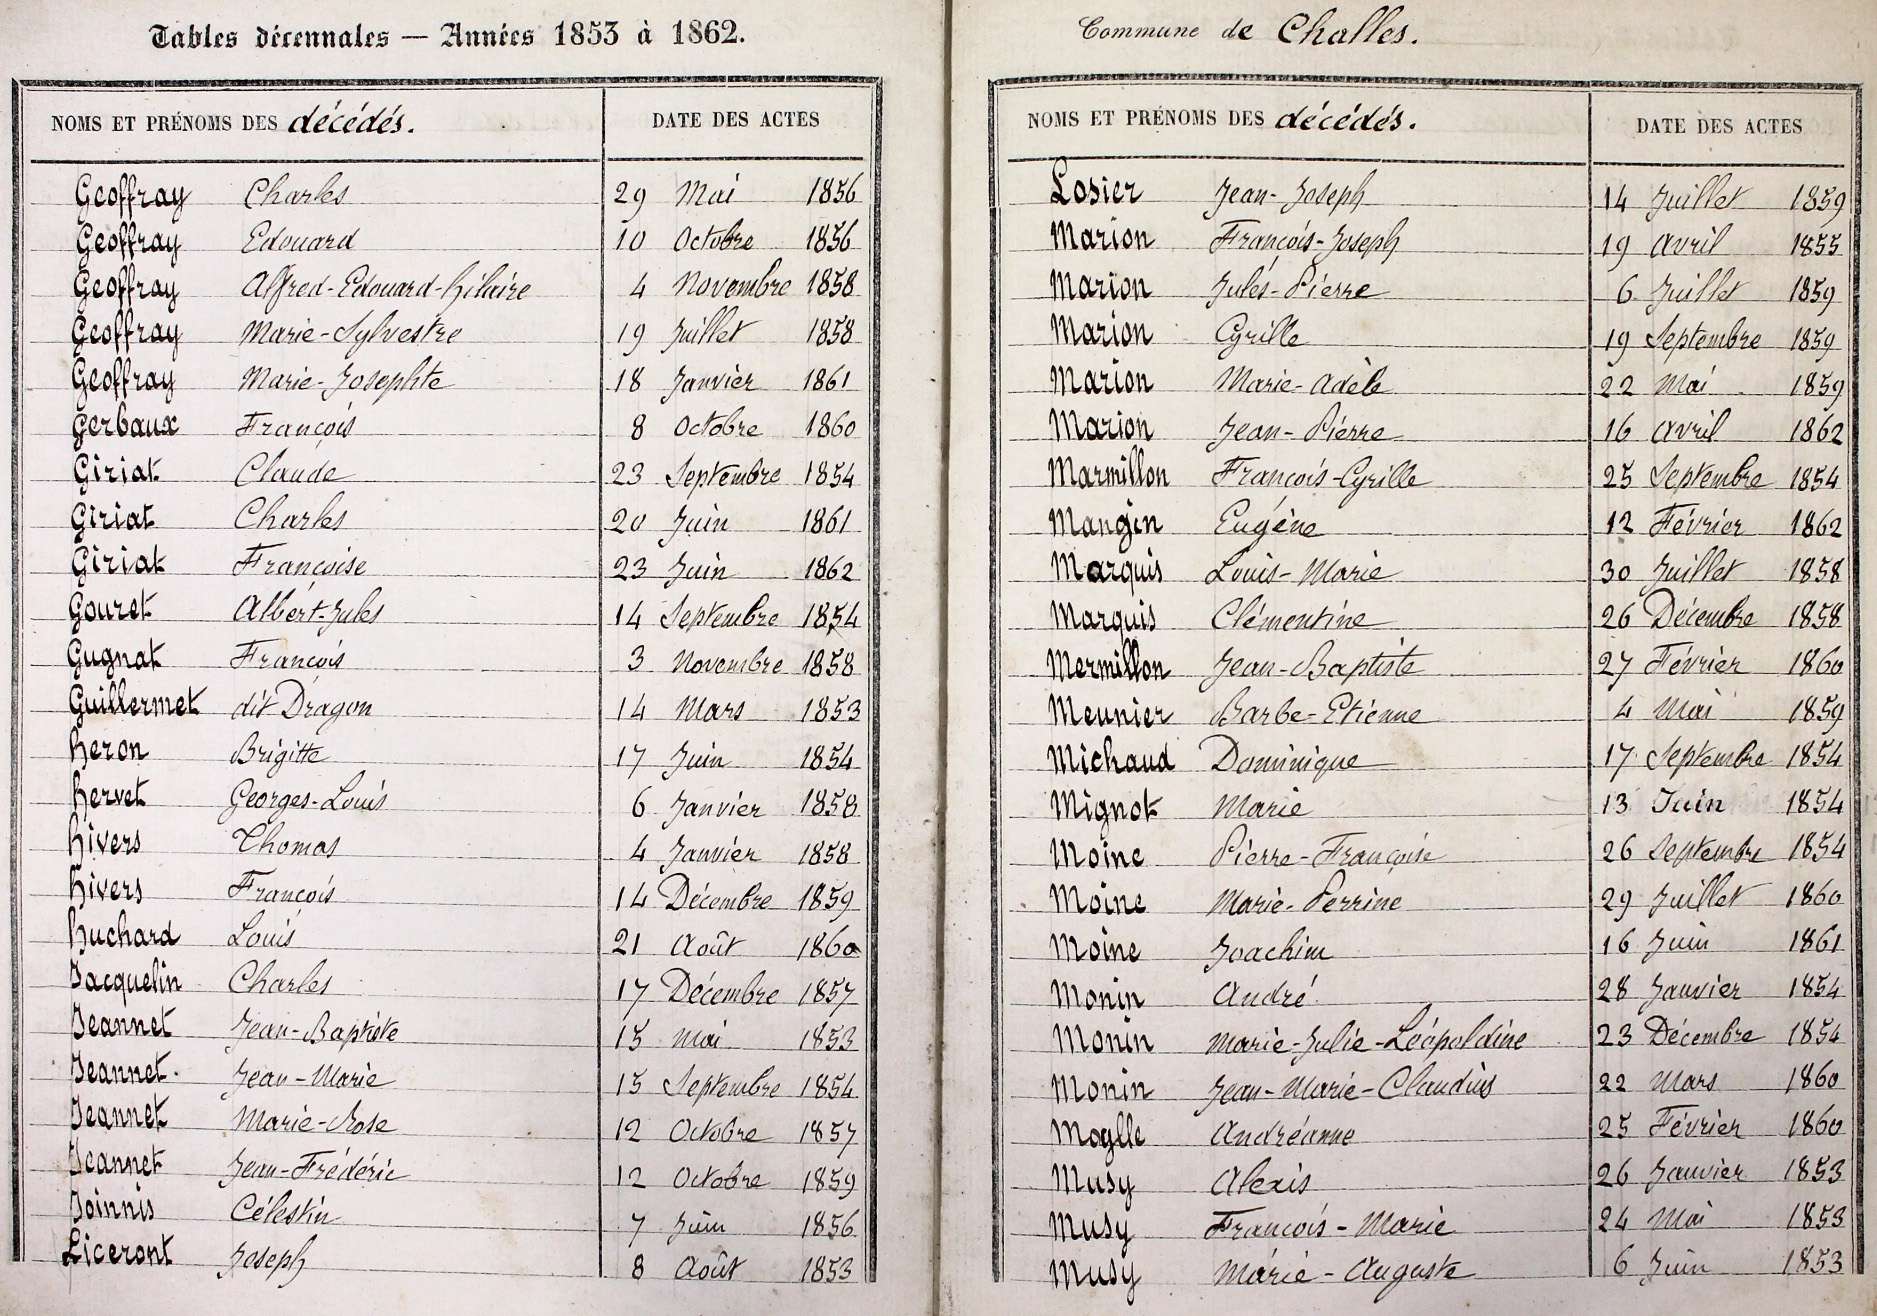 Tables décennales — Années 1853 à 1862.
NOMS ET PRÉNOMS DES décédés. DATE DES ACTES
Geoffray Charles 29 Mai 1856
Geoffray Edouard 10 Octobre 1856
Geoffray Alfred-Edouard-hilaire 4 Novembre 1858
Geoffray Marie-Sylvestre 19 Juillet 1858
Geoffray Marie-Josephte 18 Janvier 1861
Gerbaux François 8 Octobre 1860
Giriat Claude 23 Septembre 1854
Giriat Charles 20 Juin 1861
Giriat Françoise 23 Juin 1862
Gouret Albert-Jules 14 Septembre 1854
Gugnat François 3 Novembre 1858
Guillermet dit Dragon 14 Mars 1853
heron Brigitte 17 Juin 1854
hervet Georges-Louis 6 Janvier 1858
hivers Thomas 4 Janvier 1858
hivers François 14 Décembre 1859
huchard Louis 21 Août 1860
Jacquelin Charles 17 Décembre 1857
Jeannet Jean-Baptiste 15 Mai 1853
Jeannet Jean-Marie 15 Septembre 1854
Jeannet Marie-Rose 12 Octobre 1857
Jeannet Jean-Frédéric 12 Octobre 1859
Joinnis Célestin 7 Juin 1856
Liceront Joseph 8 Août 1853
Commune de Challes.
NOMS ET PRÉNOMS DES décédés. DATE DES ACTES
Losier Jean-Joseph 14 Juillet 1859
Marion François-Joseph 19 Avril 1855
Marion Jules-Pierre 6 Juillet 1859
Marion Cyrille 19 Septembre 1859
Marion Marie-Adèle 22 Mai 1859
Marion Jean-Pierre 16 Avril 1862
Marmillon François-Cyrille 25 Septembre 1854
Mangin Eugène 12 Février 1862
Marquis Louis-Marie 30 Juillet 1858
Marquis Clémentine 26 Décembre 1858
Mermillon Jean-Baptiste 27 Février 1860
Meunier Barbe-Etienne 4 Mai 1859
Michaud Dominique 17 Septembre 1854
Mignot Marie 13 Juin 1854
Moine Pierre-Françoise 26 Septembre 1854
Moine Marie-Perrine 29 Juillet 1860
Moine Joachim 16 Juin 1861
Monin André 28 Janvier 1854
Monin Marie-Julie-Léopoldine 23 Décembre 1854
Monin Jean-Marie-Claudius 22 Mars 1860
Moylle Andréanne 25 Février 1860
Musy Alexis 26 Janvier 1853
Musy François-Marie 24 Mai 1853
Musy Marie-Auguste 6 Juin 1853